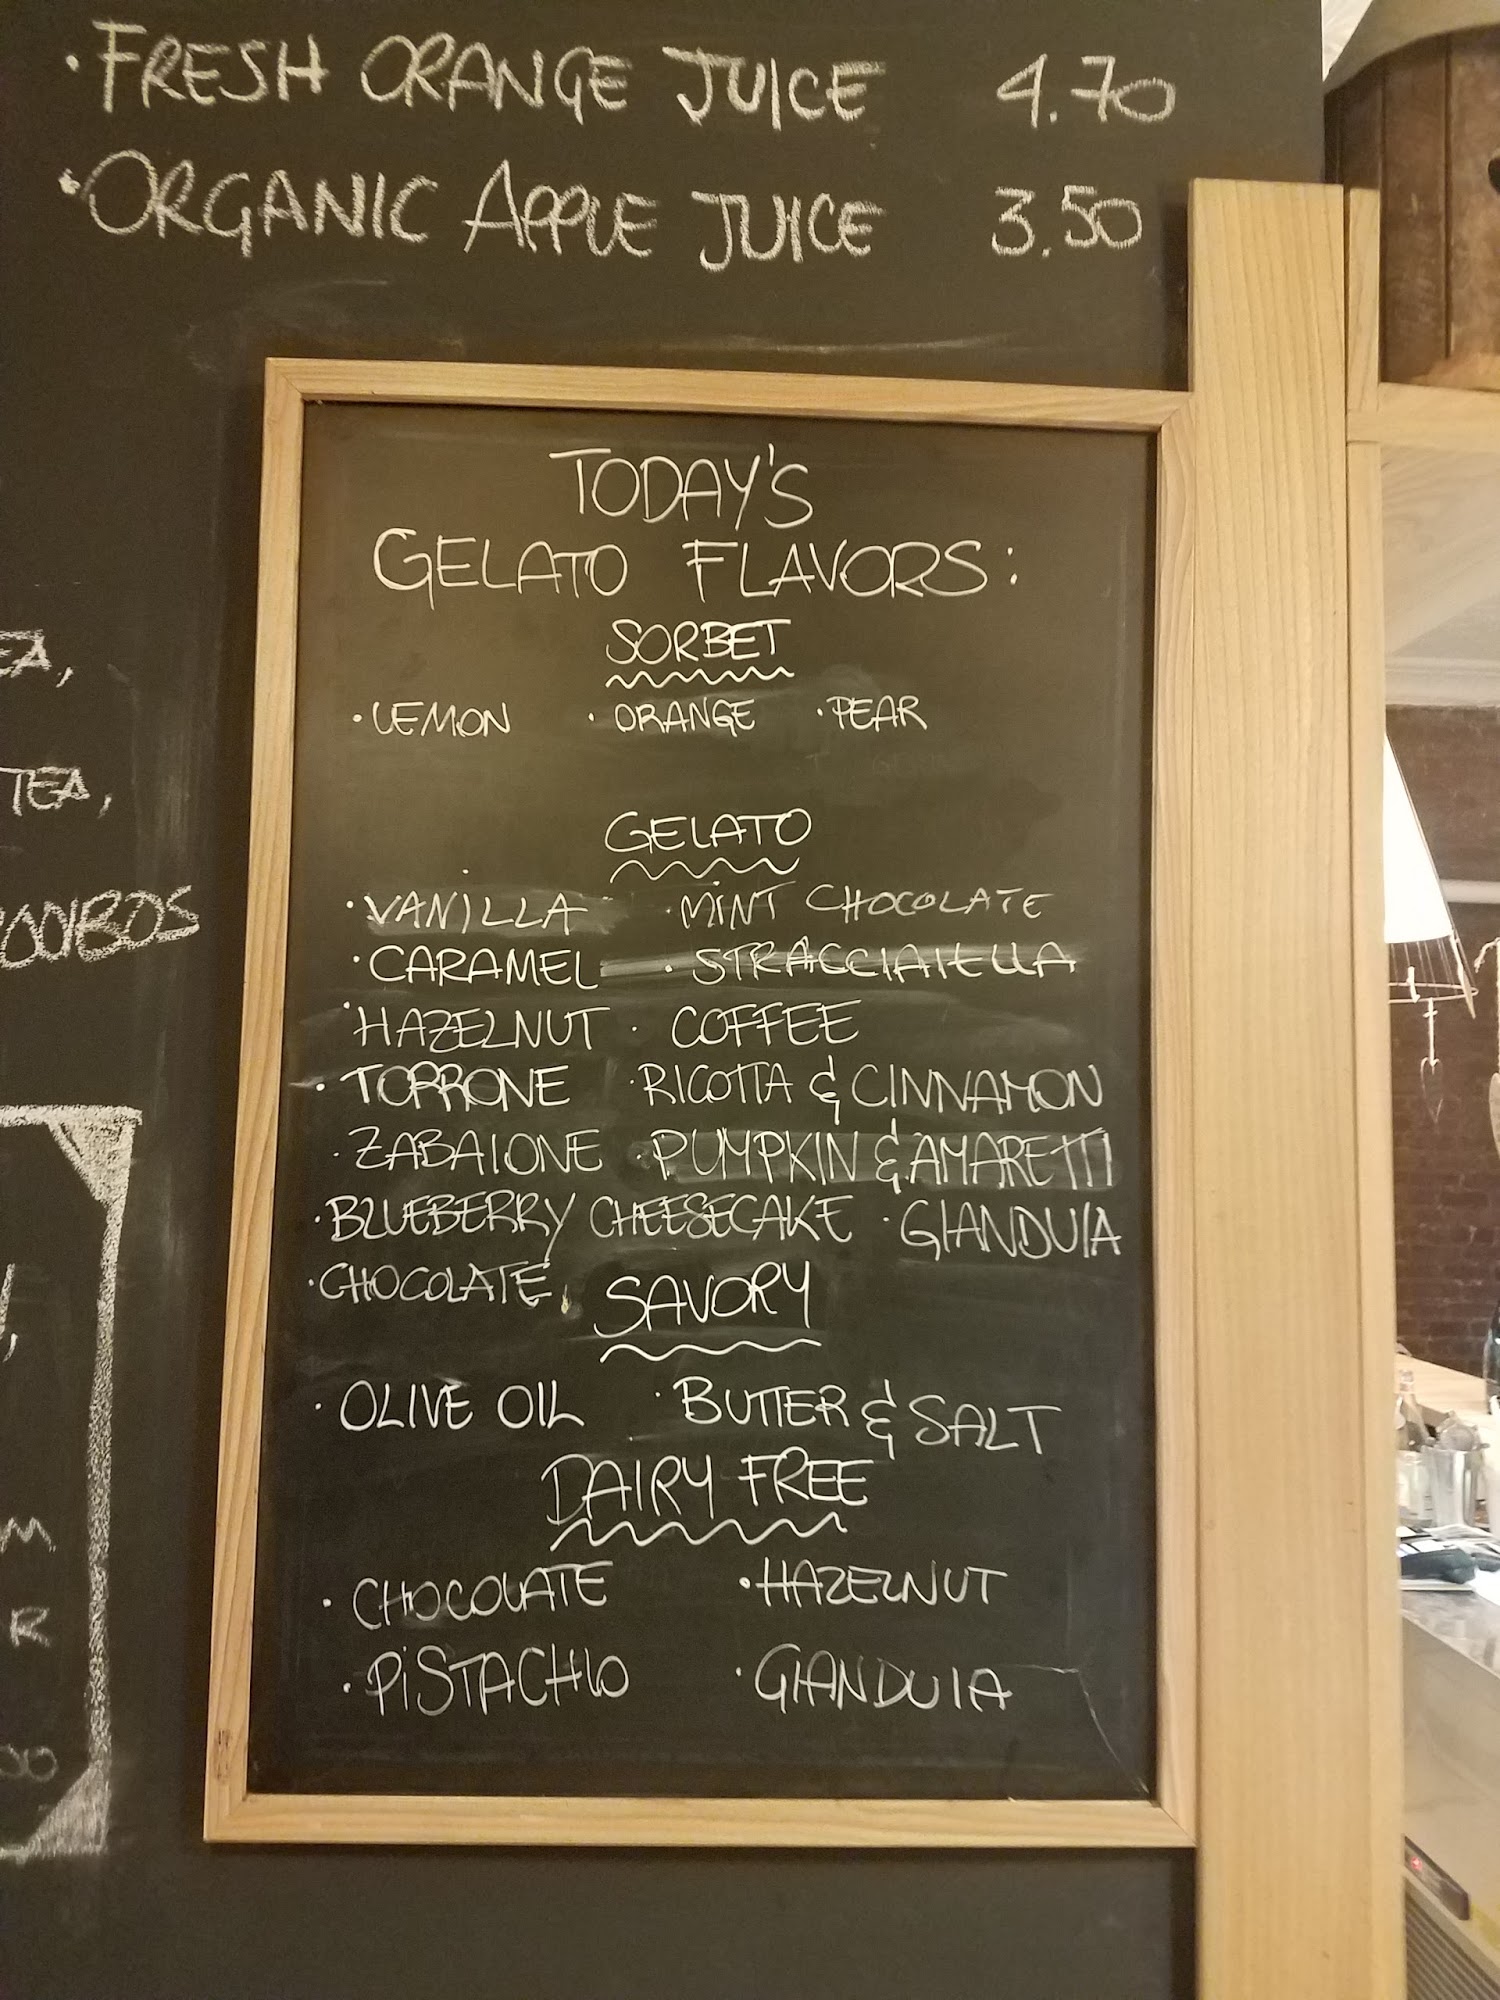 ·FRESH ORANGE JUICE 4.70
·ORGANIC APPLE JUICE 3.50
TODAY'S
GELATO FLAVORS:
SORBET
·LEMON ·ORANGE ·PEAR
GELATO
·VANILLA ·MINT CHOCOLATE
·CARAMEL ·STRACCIATELLA
·HAZELNUT · COFFEE
·TORRONE ·RICOTTA & CINNAMON
·ZABAIONE ·PUMPKIN & AMARETTI
·BLUEBERRY CHEESECAKE ·GIANDUIA
·CHOCOLATE
SAVORY
·OLIVE OIL ·BUTTER & SALT
DAIRY FREE
·CHOCOLATE ·HAZELNUT
·PISTACHIO ·GIANDUIA
TEA,